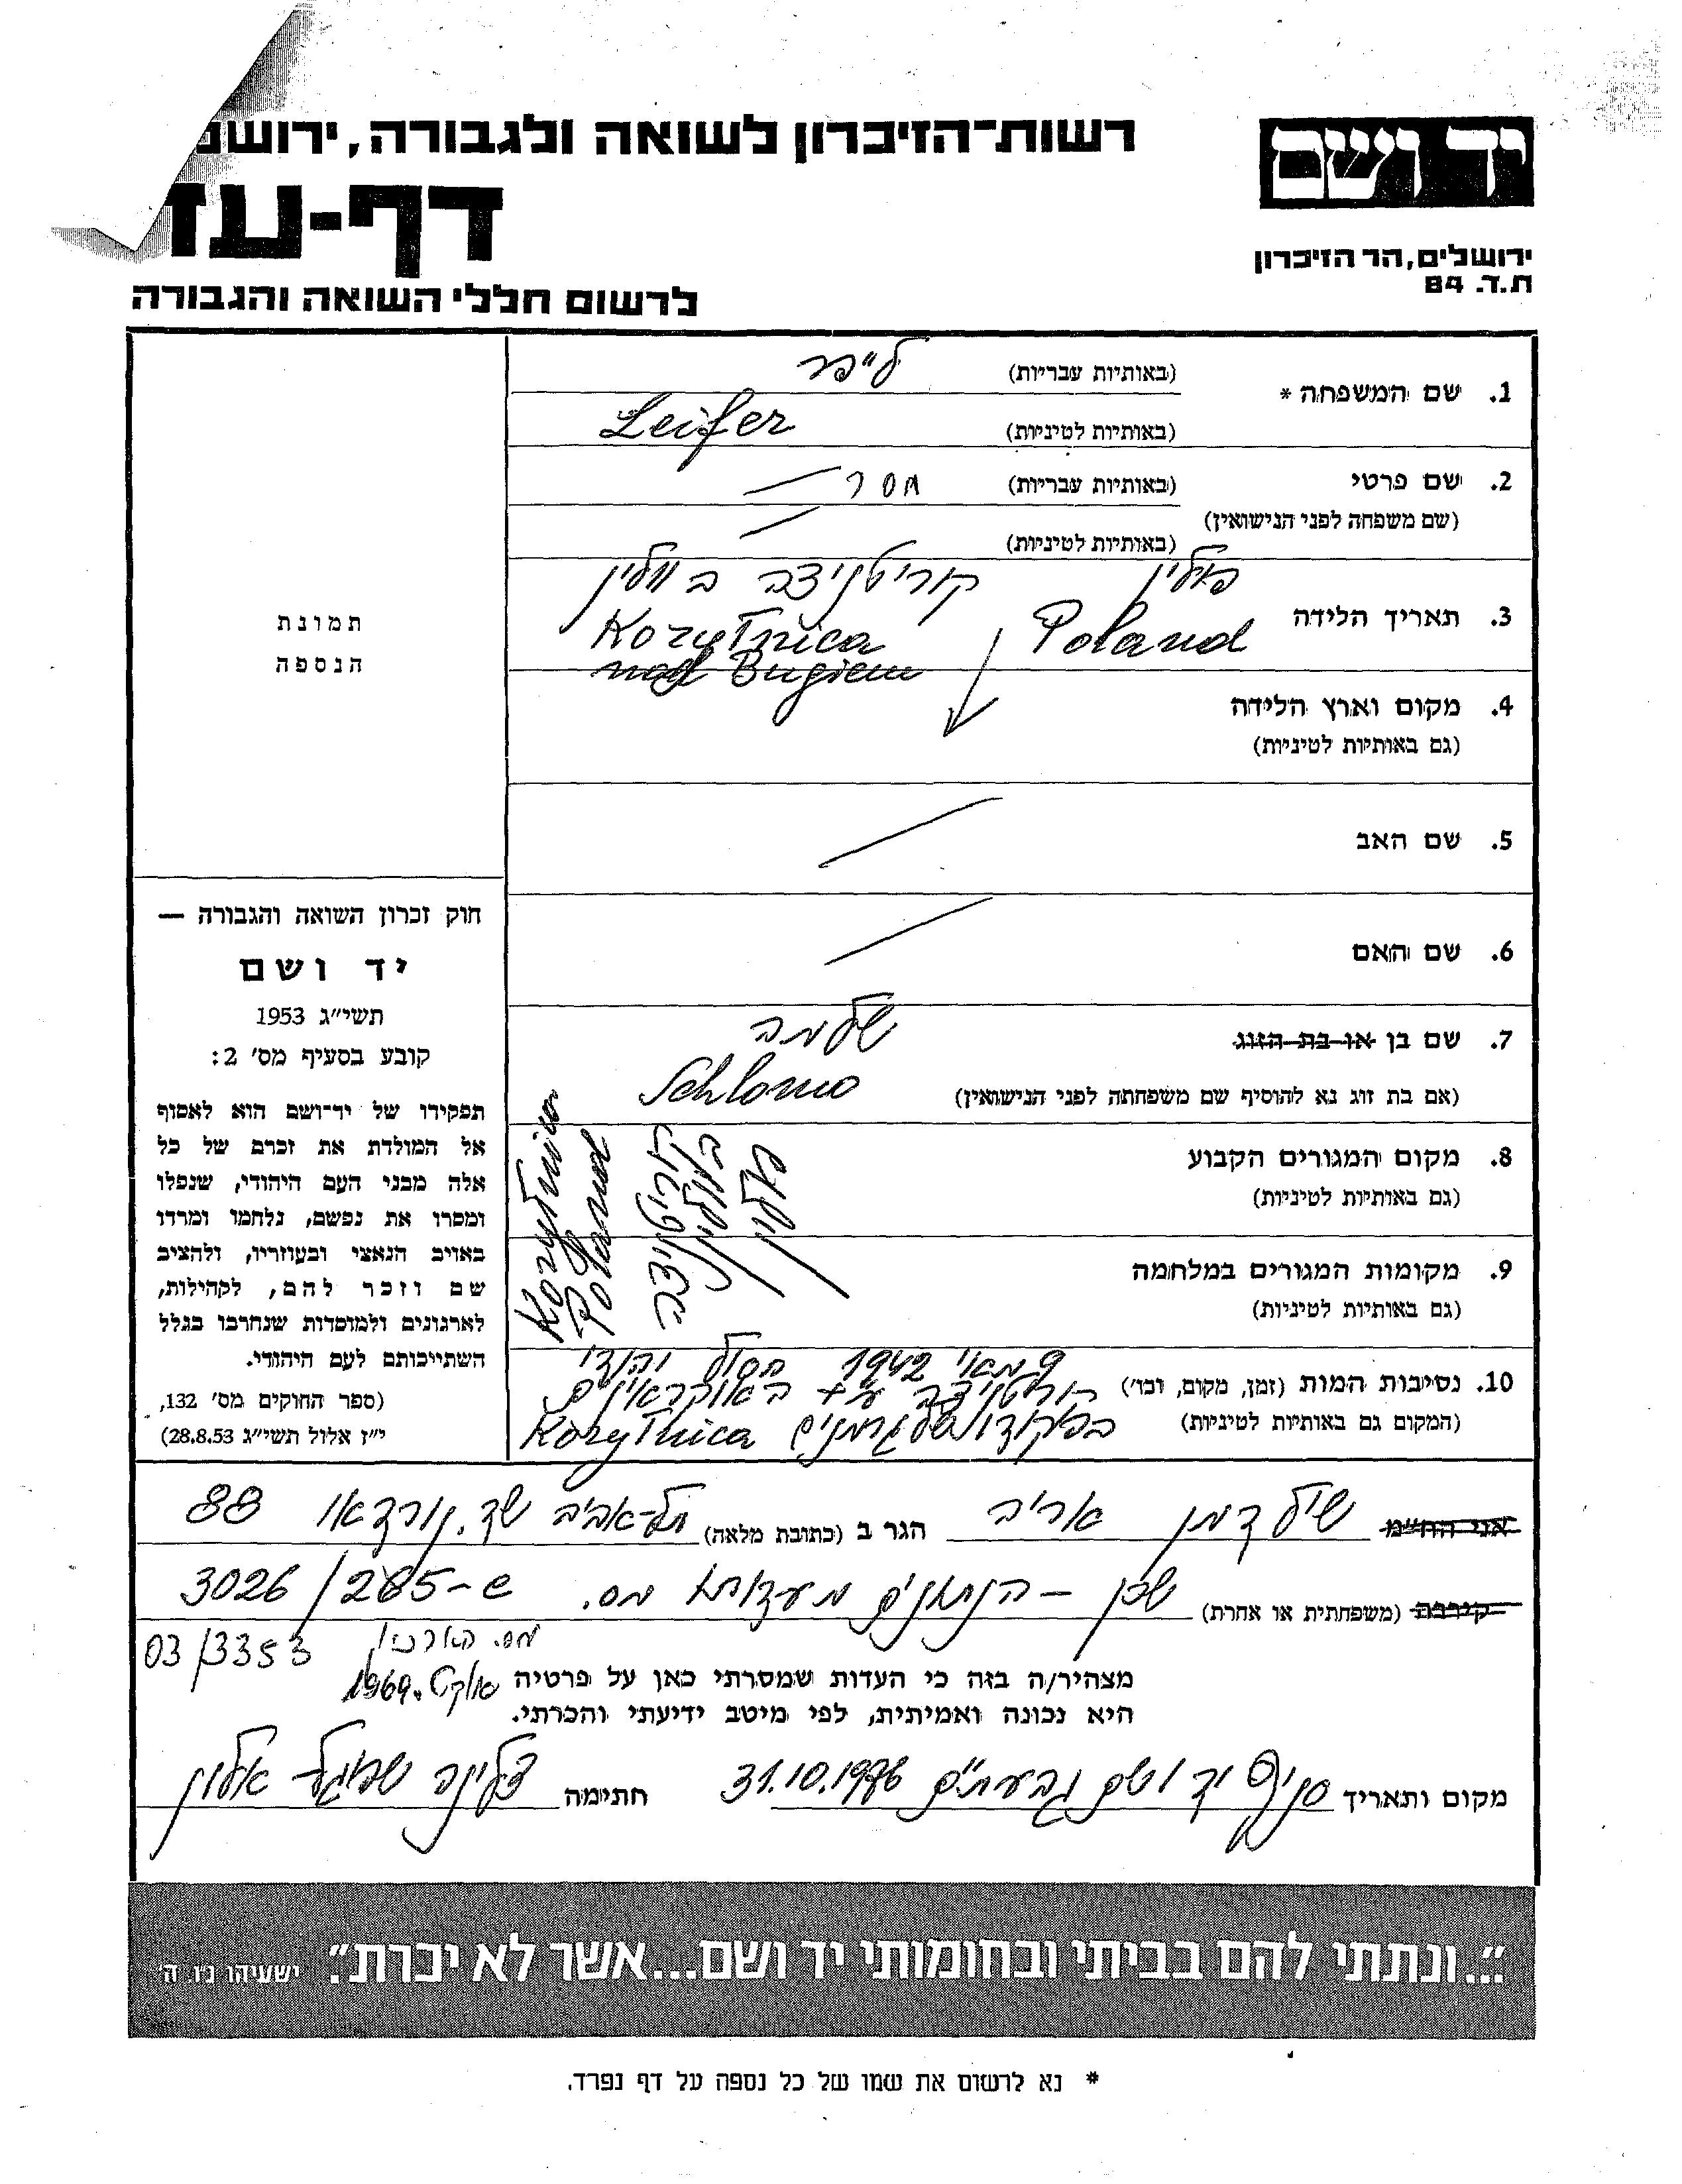 רשות־הזיכרון לשואה ולגבורה, ירושל
יד ושם
דף-עד
ירושלים, הר הזיכרון
ת.ד. 84
לרשום חללי השואה והגבורה
1. שם המשפחה *
(באותיות עבריות) לייפר
(באותיות לטיניות) Leifer
2. שם פרטי
(באותיות עבריות) חסר —
(שם משפחה לפני הנישואין)
(באותיות לטיניות) —
פולין קוריטניצה בווולין
3. תאריך הלידה
Poland Korytnica
nad Bugiem
4. מקום וארץ הלידה
(גם באותיות לטיניות)
5. שם האב
6. שם האם
7. שם בן או בת הזוג
שלמה
(אם בת זוג נא להוסיף שם משפחתה לפני הנישואין)
Schlomo
8. מקום המגורים הקבוע
(גם באותיות לטיניות)
9. מקומות המגורים במלחמה
(גם באותיות לטיניות)
קוריטניצה
בווולין
פולין
Korytnica
Poland
10. נסיבות המות (זמן, מקום, וכו')
(המקום גם באותיות לטיניות)
9 מאי 1942 חסול יהודי
קוריטניצה ע״י האוקראינים
בפיקוד של גרמנים Korytnica
תמונת
הנספה
חוק זכרון השואה והגבורה —
יד ושם
תשי״ג 1953
קובע בסעיף מס׳ 2:
תפקידו של יד־ושם הוא לאסוף
אל המולדת את זכרם של כל
אלה מבני העם היהודי, שנפלו
ומסרו את נפשם, נלחמו ומרדו
באויב הנאצי ובעוזריו, ולהציב
שם וזכר להם, לקהילות,
לארגונים ולמוסדות שנחרבו בגלל
השתייכותם לעם היהודי.
(ספר החוקים מס׳ 132,
י״ז אלול תשי״ג 28.8.53)
אני הח״מ אריה הגר ב (כתובת מלאה) תל-אביב שד. נורדאו 88
קירבה (משפחתית או אחרת) שכן – הנתונים מעדות מס. 3026/285-ש
מס. הארכיון 03/3353
מצהיר/ה בזה כי העדות שמסרתי כאן על פרטיה אוקט. 1969
היא נכונה ואמיתית, לפי מיטב ידיעתי והכרתי.
מקום ותאריך סניף יד ושם גבעתיים 31.10.1976 חתימה
״...ונתתי להם בביתי ובחומותי יד ושם...אשר לא יכרת״. ישעיהו נו, ה
* נא לרשום את שמו של כל נספה על דף נפרד.